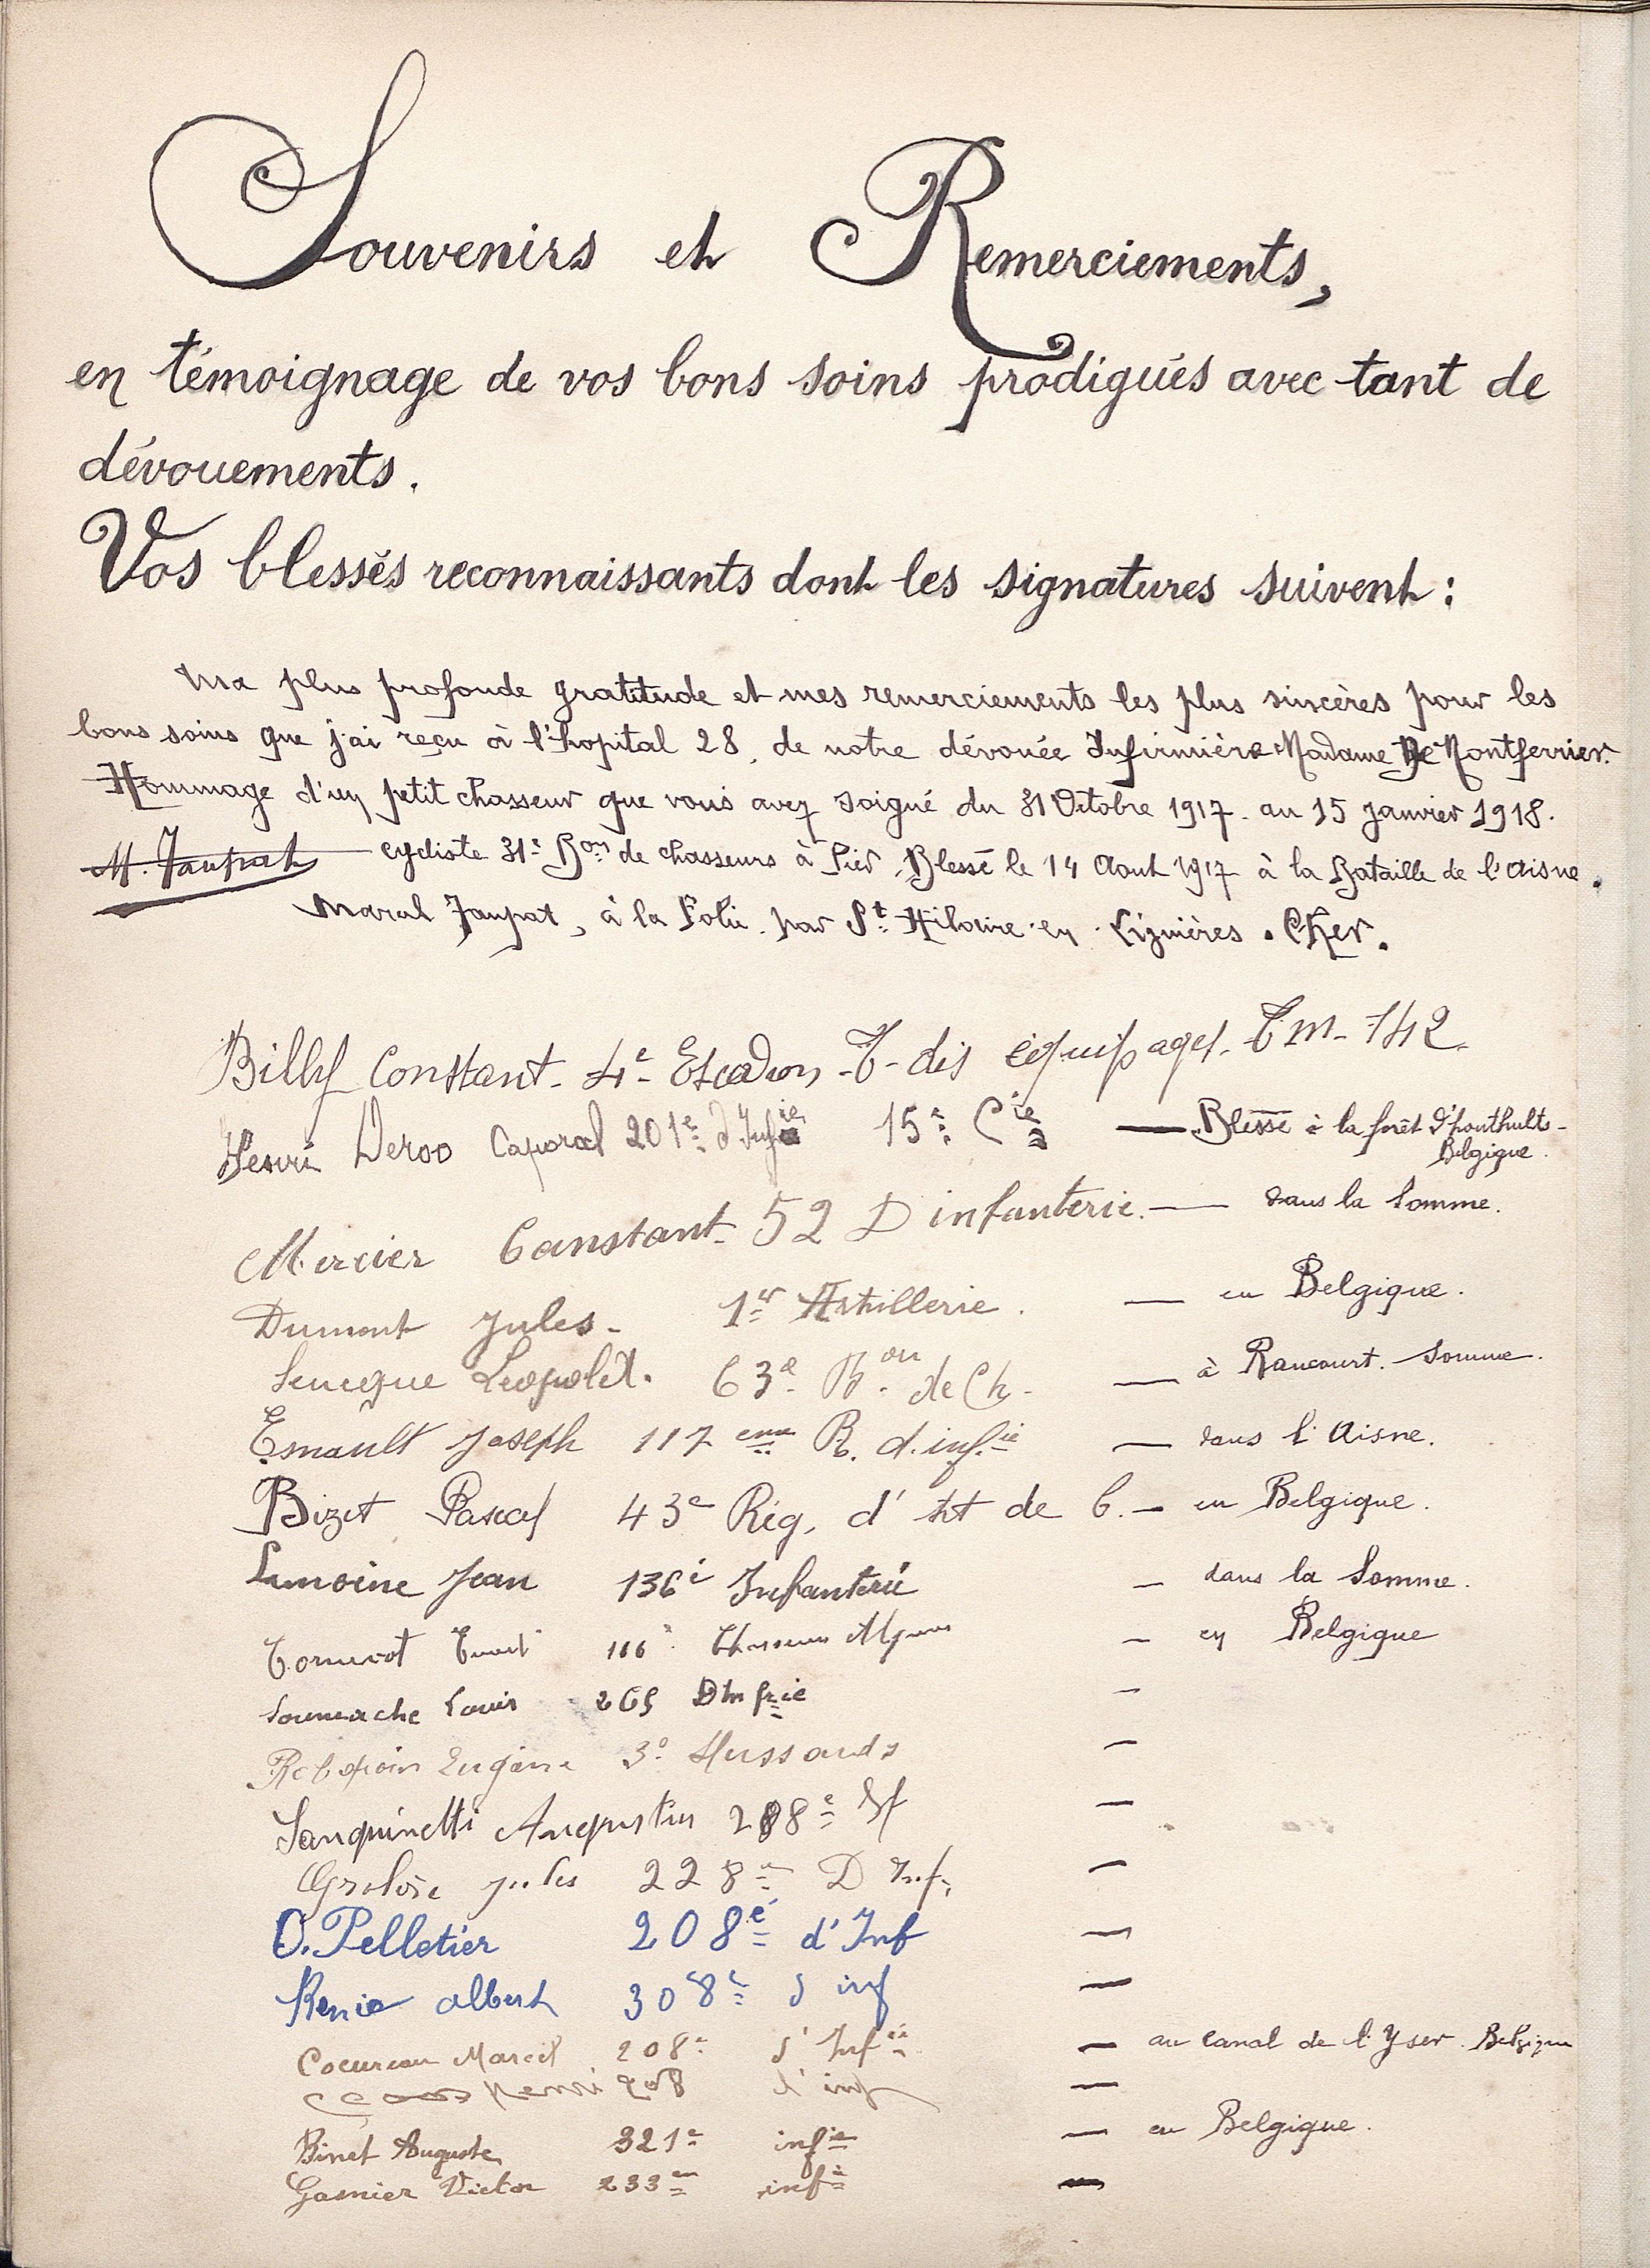 Souvenirs et Remerciements,
en témoignage de vos bons soins prodigués avec tant de
dévouements.
Vos blessés reconnaissants dont les signatures suivent :
Ma plus profonde gratitude et mes remerciements les plus sincères pour les
bons soins que j'ai reçu à l'hopital 28, de notre dévouée Infirmière Madame De Montferrier.
Hommage d'un petit chasseur que vous avez soigné du 31 Octobre 1917 au 15 Janvier 1918.
M. Jaupat cycliste 31e Bon de chasseurs à Pied, Blessé le 14 Aout 1917 à la Bataille de l'Aisne.
Jaupat, à la Folie par St Hilaire en Lignières. Cher.
Billy Constant - 4e Escadron - T - des équipages - T.M - 142
Henri Deroo Caporal 201e d'Infie 15e Cie — Blessé à la forêt d'houthults -
Belgique.
Mercier Constant 52 D infanterie. — dans la Somme.
Dumont Jules - 1er Artillerie. — en Belgique.
Seneque Léopold. 63e Bon de Ch - — à Rancourt. Somme.
Esnault Joseph 117eme R. d. infie — dans l'Aisne.
Bizet Pascal 43e Rég, d' Art de C. — en Belgique.
Lemoine Jean 136e Infanterie — dans la Somme.
116e Chasseurs Alpins — en Belgique
Louis 265 D'Infrie —
Eugène 3e Hussards —
Sanquinetti Augustin 288e If —
Jules 228e D Inf. —
O. Pelletier 208e d'Inf —
Renie Albert 308e d inf —
Marcel 208e d'Infie — au Canal de l'Yser. Belgique
Henri 208 d'inf —
Binet Auguste 321e infie — en Belgique.
Gasnier Victor 233em infie —